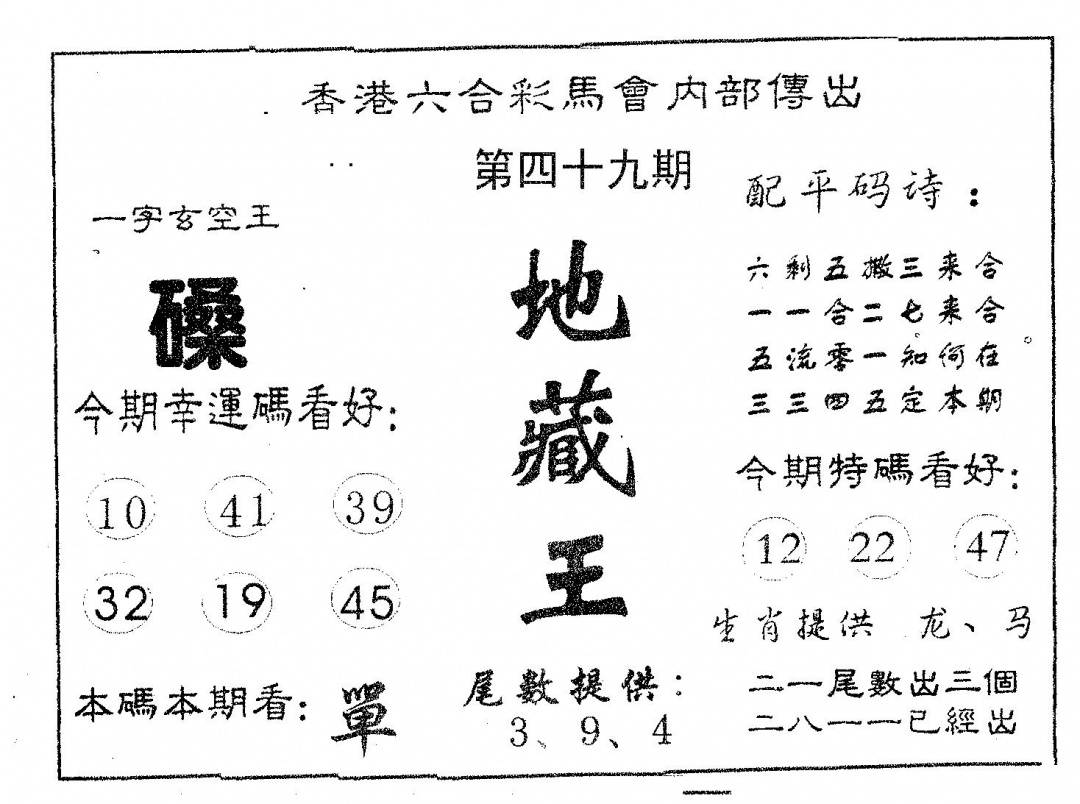 香港六合彩馬會内部傳出
第四十九期
一字玄空王
磉
今期幸運碼看好：
10 41 39
32 19 45
本碼本期看：單
地藏王
尾數提供：
3、9、4
配平码诗：
六剩五搬三来合
一一合二七来合
五流零一知何在
三三四五定本期
今期特碼看好：
12 22 47
生肖提供 龙、马
二一尾數出三個
二八一一已經出